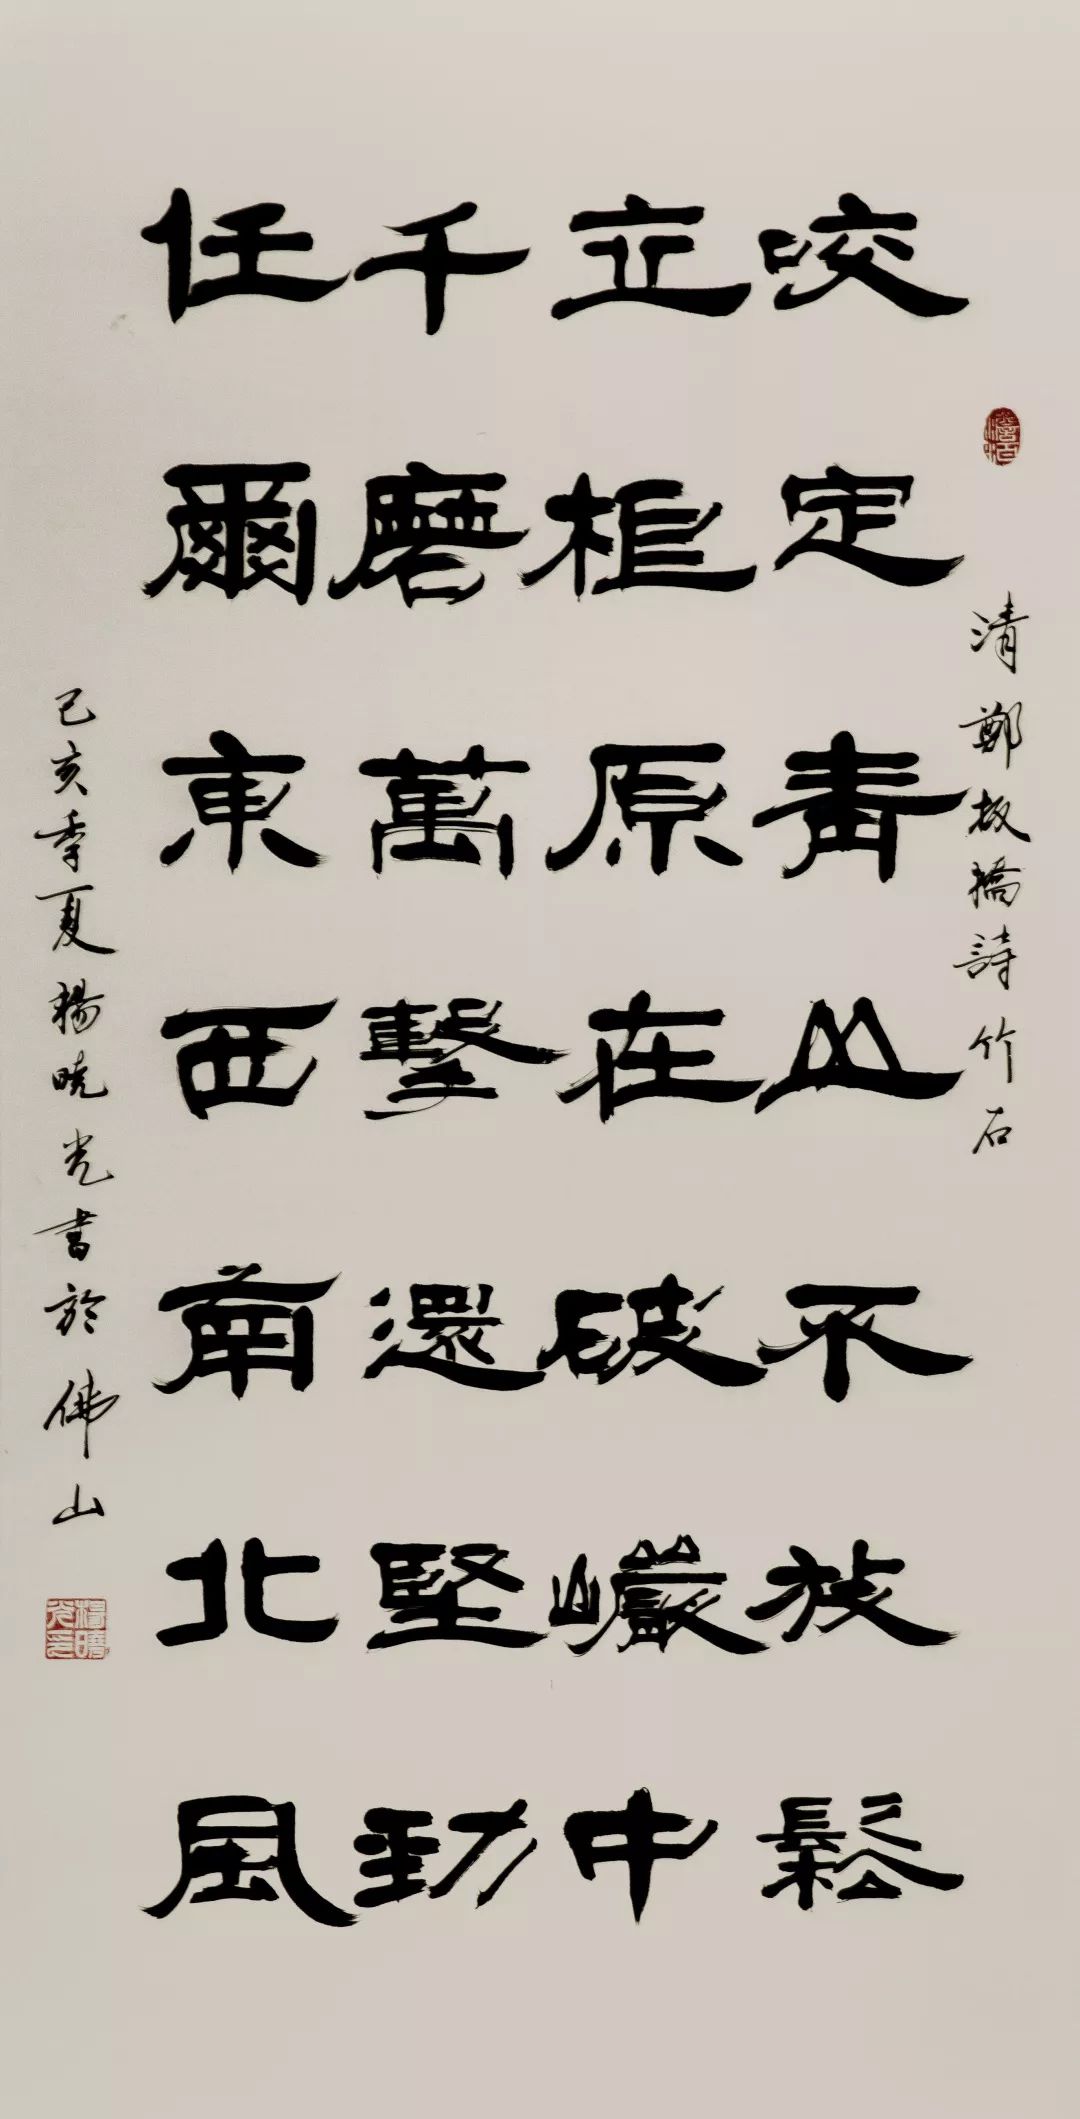 清鄭板橋詩竹石
咬定青山不放鬆
立根原在破巗中
千磨萬擊還堅勁
任爾東西南北風
己亥季夏楊曉光書於佛山
楊曉光印